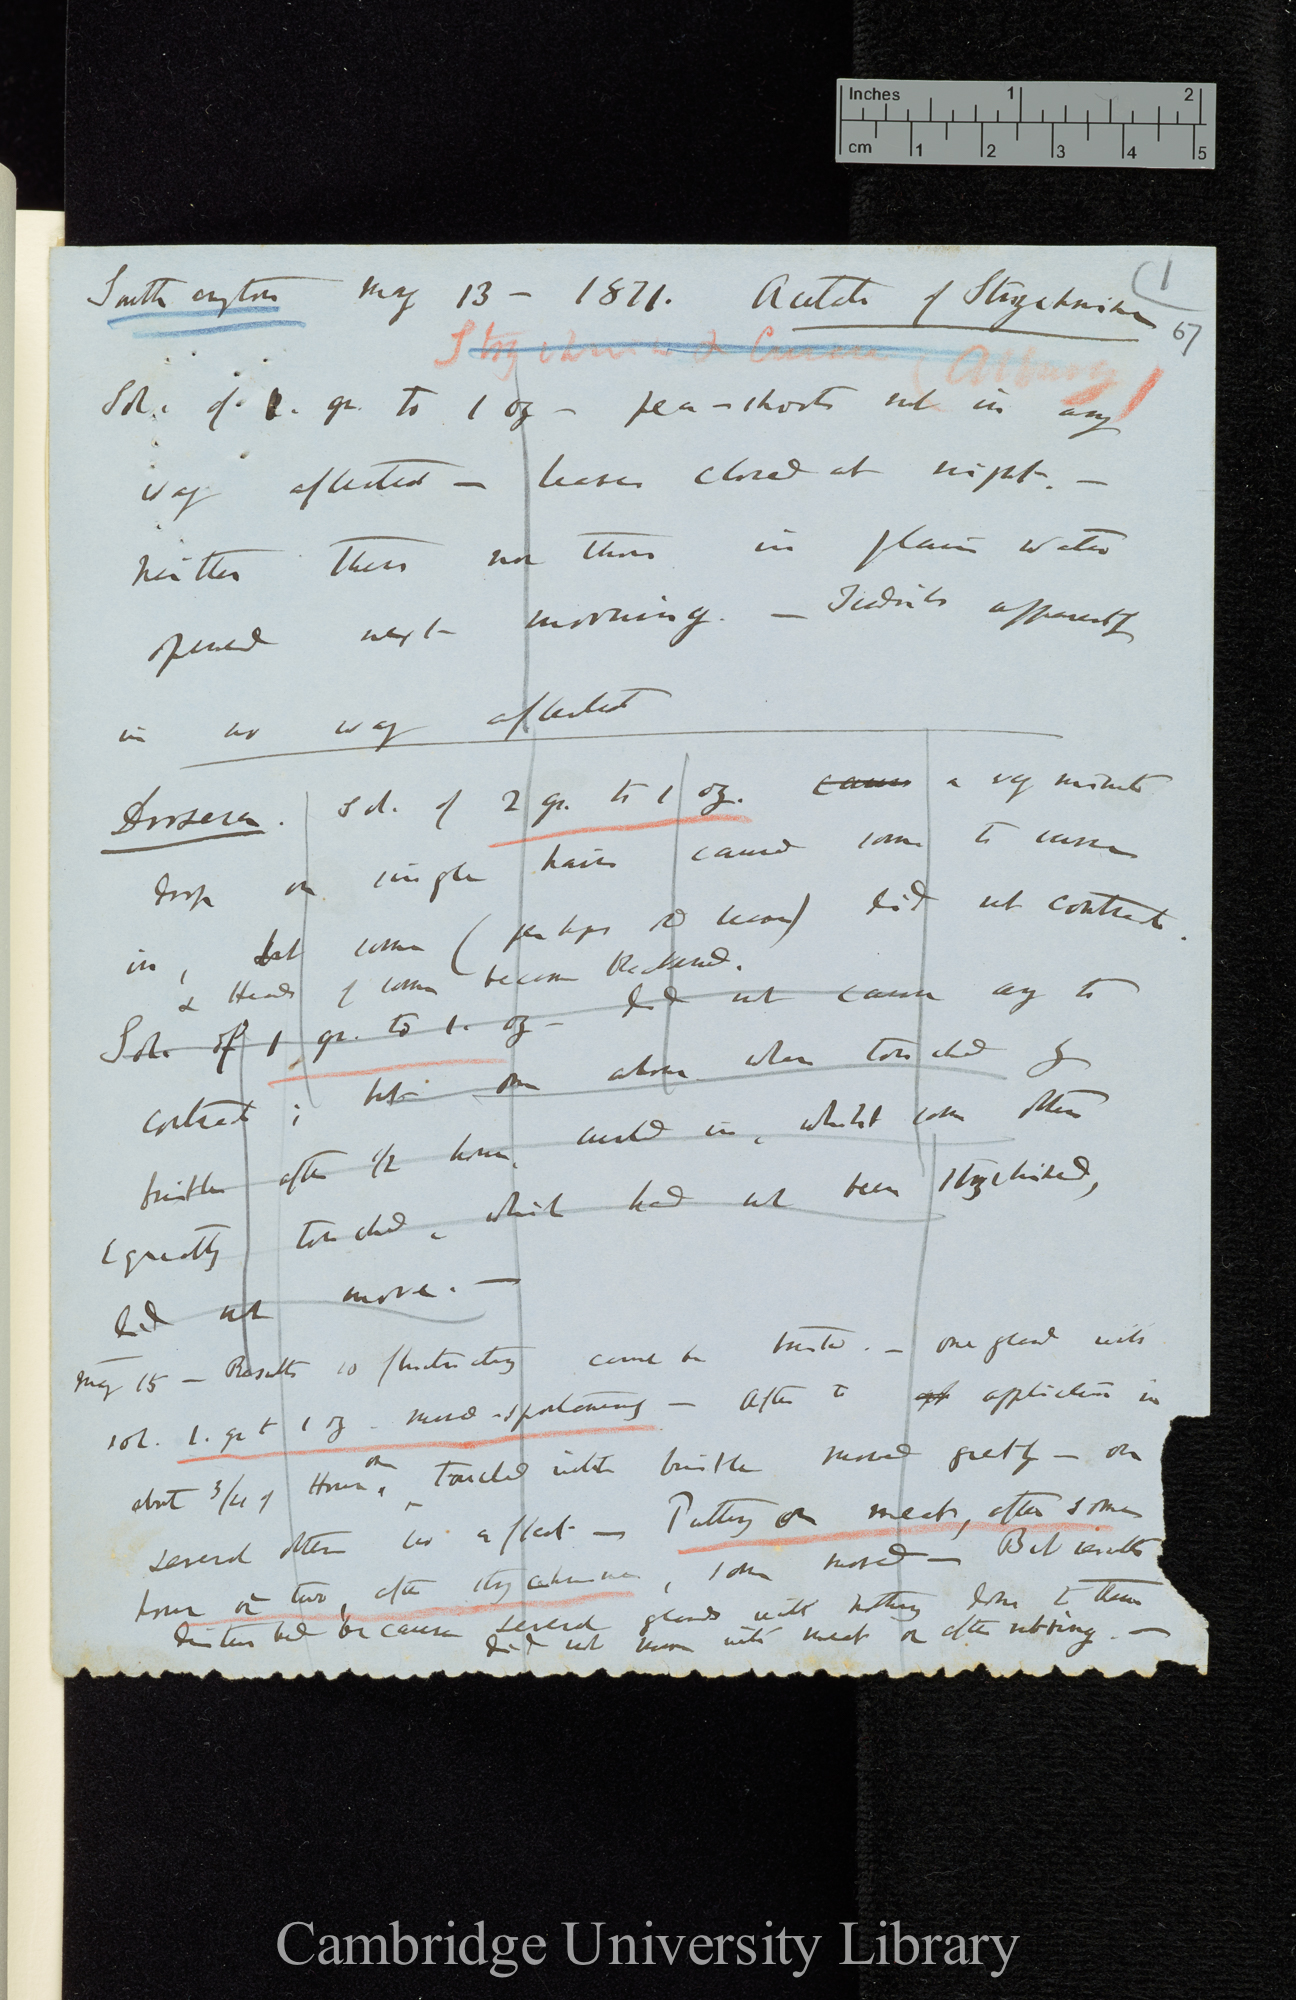 Inches 1 2
cm 1 2 3 4 5
(1
Southampton May 13 – 1871. Acetate of Strychnine
67
Strychnine & Curare (Albury)
Sol. of 1. gr. to 1 oz – pea-shoots not in any
way affected – leaves closed at night. –
Neither these nor those in plain water
opened next morning. – Tendrils apparently
in no way affected
Drosera. Sol. of 2 gr. to 1 oz. cause a very minute
drop on single hairs caused some to curve
in, but some (perhaps so seen) did not contract.
& Heads of some become blackened.
Sol. of 1 gr. to 1. oz – did not cause any to
contract; but one above when touched by
bristle after 1/2 hour, curled in, whilst some others
equally touched, which had not been strychnined,
did not move. –
May 15 – Results so fluctuating cannot be trusted. – one gland with
sol. 1. gr to 1 oz – moved spontaneously – After to application in
about 3/4 of Hour, one touched with bristle moved greatly – on
several others no effect – Putting on meat, after some
hour or two, after strychnine, some moved – But results
disturbed because several glands with nothing done to them
did not move with meat or after rubbing. –
Cambridge University Library